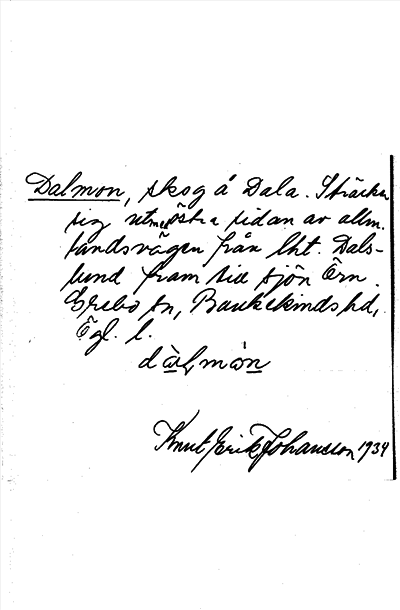 Dalmon, skog å Dala. Sträcker
sig utmed östra sidan av allm.
landsvägen från lht. Dals-
lund fram till sjön Ärn.
Grebo sn, Bankekinds hd,
Ögl. l.
Knut Erik Johansson 1934